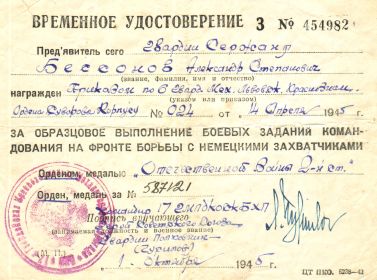 ВРЕМЕННОЕ УДОСТОВЕРЕНИЕ З № 454982
Пред'явитель сего Гвардии Сержант
Бессонов Александр Степанович
(звание, фамилия, имя и отчество)
награжден Приказом по 6 Гвард. Мех. Львовск. Краснозн.
(указом или приказом)
Ордена Суворова Корпусу № 024 от 4 Апреля 1945 г.
ЗА ОБРАЗЦОВОЕ ВЫПОЛНЕНИЕ БОЕВЫХ ЗАДАНИЙ КОМАН-
ДОВАНИЯ НА ФРОНТЕ БОРЬБЫ С НЕМЕЦКИМИ ЗАХВАТЧИКАМИ
Орденом, медалью "Отечественной Войны 2-й ст."
Орден, медаль за № 587121
Командир 17
Подпись вручающего
Герой Советского Союза
(занимаемая должность и военное звание)
Гвардии Полковник
1 Октября 1945 г.